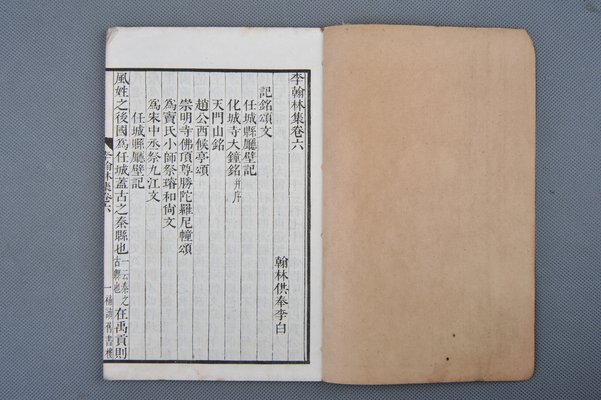 李翰林集卷六
翰林供奉李白
記銘頌文
任城縣廳壁記
化城寺大鐘銘并序
天門山銘
趙公西候亭頌
崇明寺佛頂尊勝陀羅尼幢頌
為竇氏小師祭璿和尙文
為宋中丞祭九江文
任城縣廳壁記
風姓之後國為任城蓋古之秦縣也一云秦之古縣也在禹貢則
李翰林集卷六
一